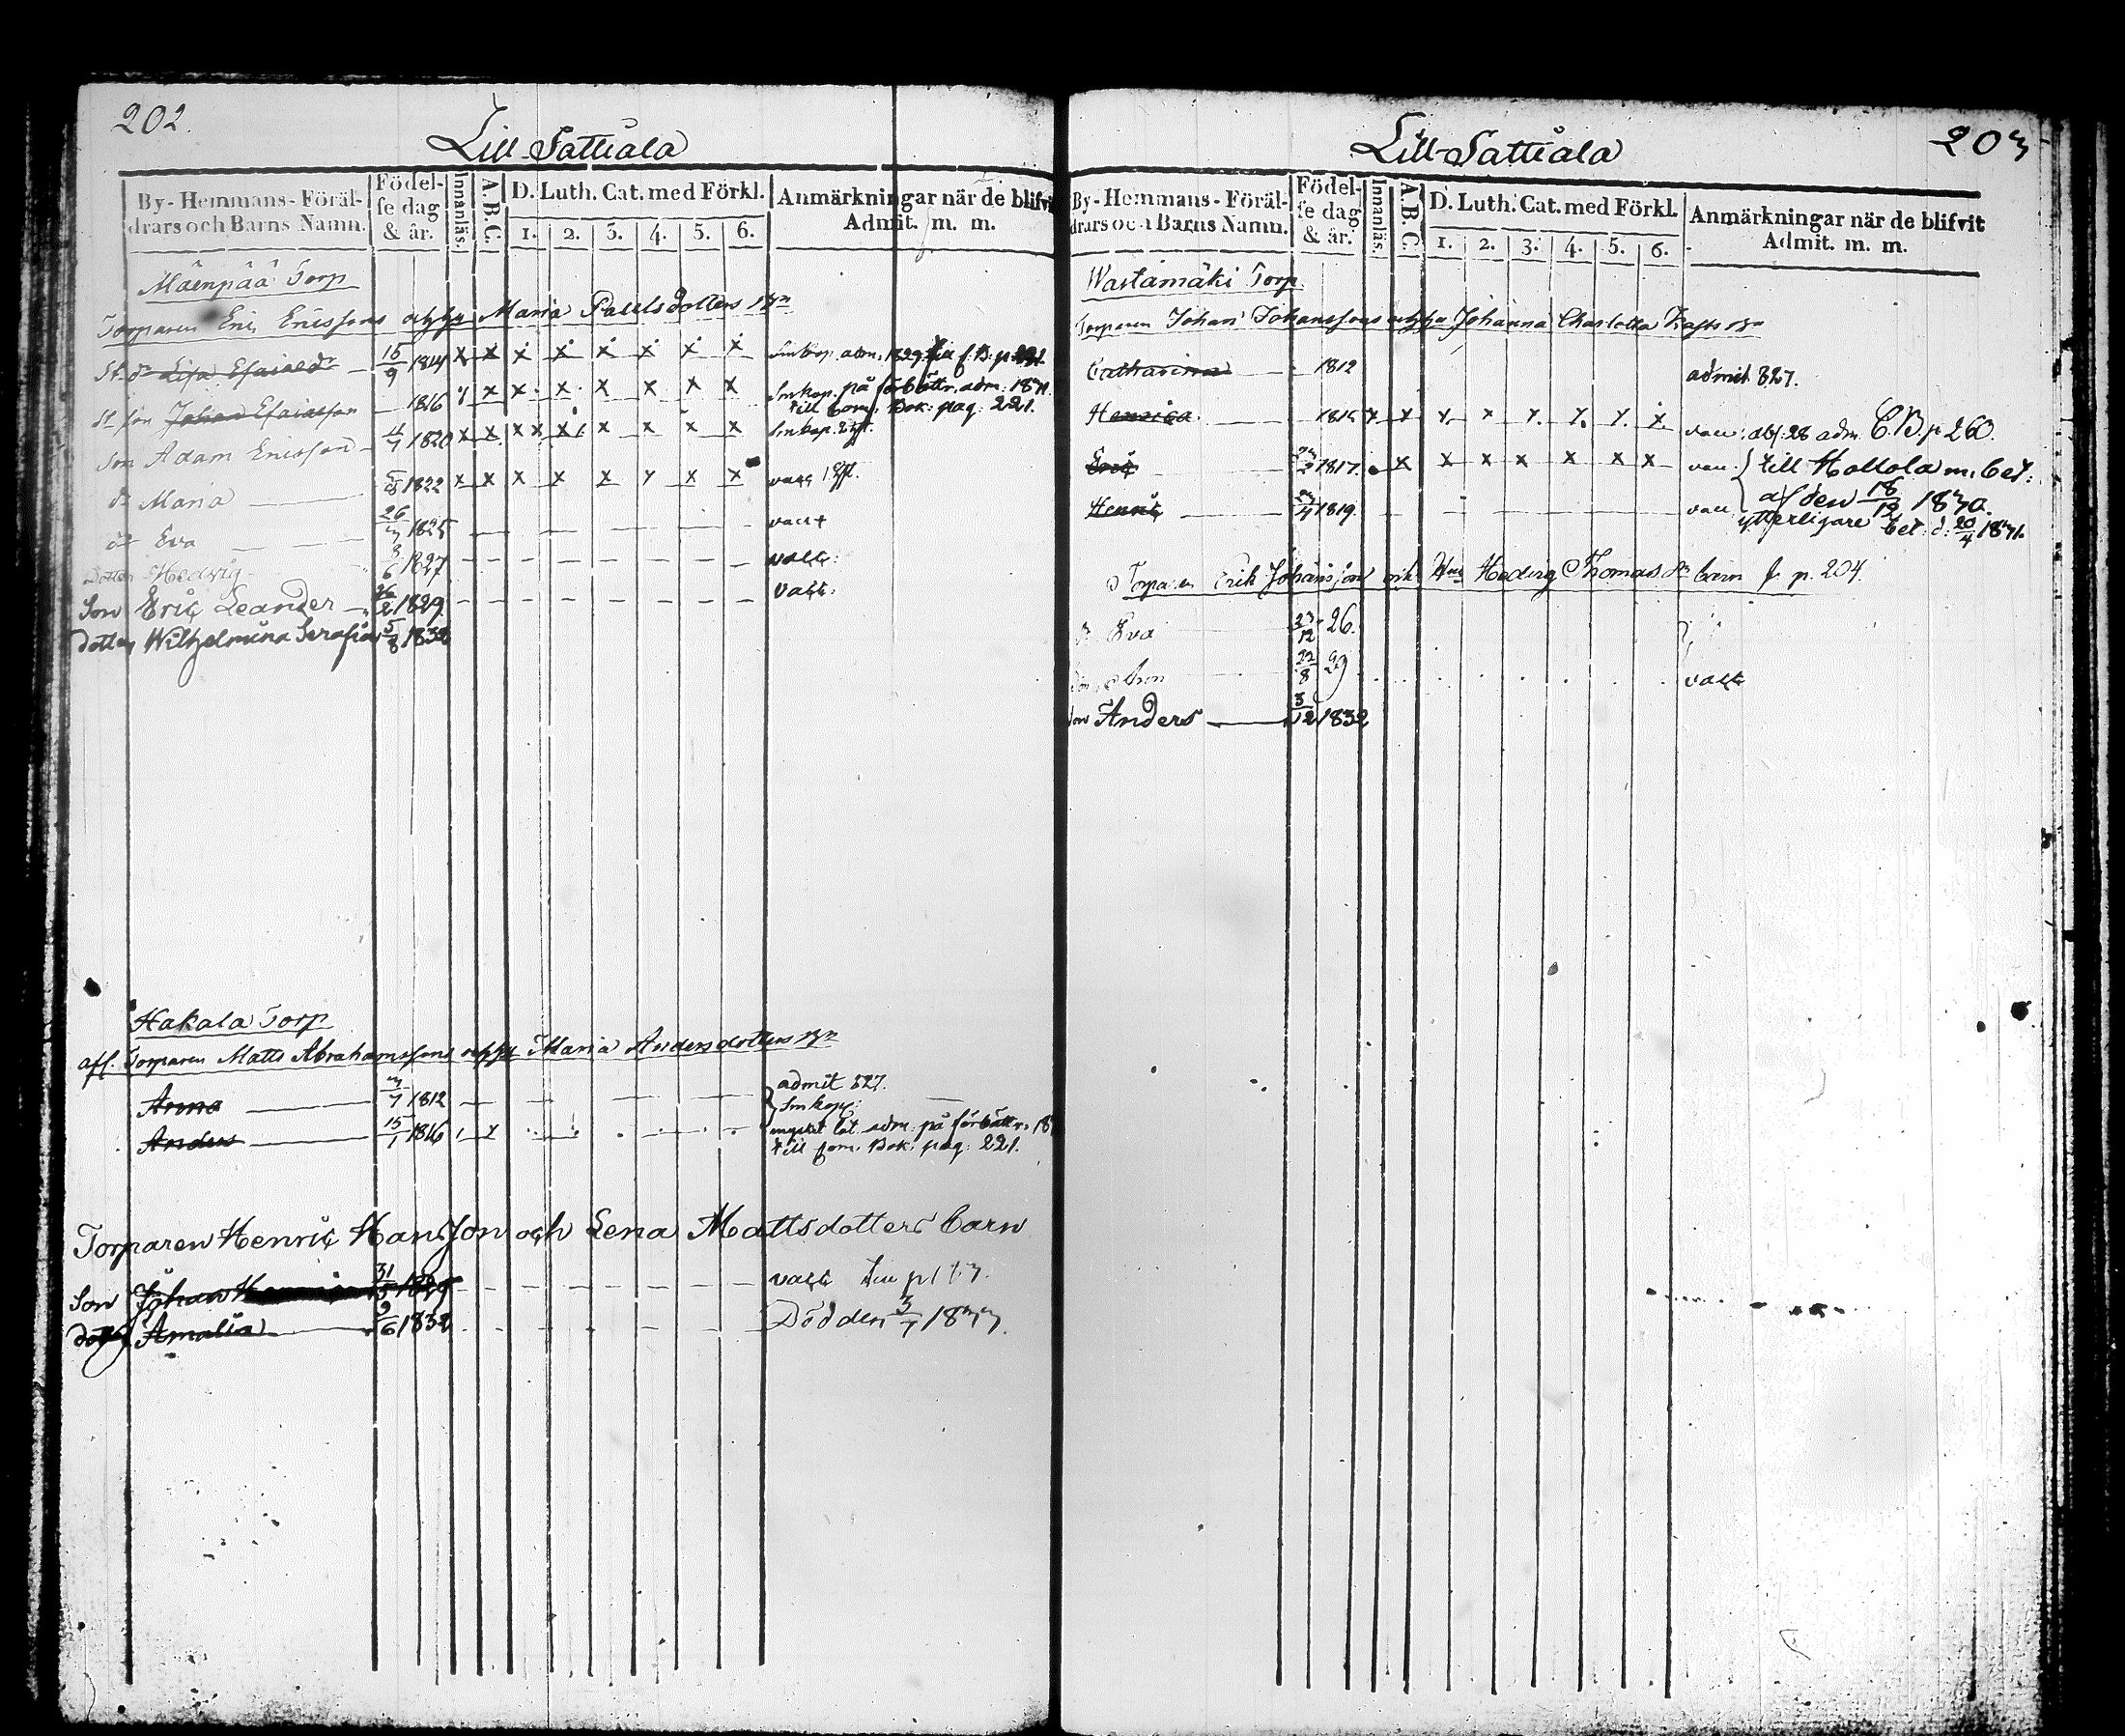 202.
Lill-Sattiala
By-Hemmans-Föräl-
drars och Barns Namn.
Födel-
se dag
& år.
Innanläs.
A.B.C.
D. Luth. Cat. med Förkl.
1. 2. 3. 4. 5. 6.
Anmärkningar när de blifvit
Admit. m. m.
Mäenpää Torp
Torparen Eric Ericssons och hu Maria Paulsdotters Bn
St. dr Lisa Esaiædr 15/9 1814 x x x x x x x x Innkop. adm. 1829 till p. 221.
St. son Johan Esaiasson 1816 x x x x x x x Innkop. på förbättr. adm: 1831.
till Com. Bok: pag: 221.
Son Adam Ericsson 4/7 1820 x x x x x x x x Innkop.
dr Maria 1822 x x x x x x x x vacc
dr Eva 26/ 1825 vacc
Dotter Hedvig 1827 vacc:
Son Eric Leander 26/2 1829 vacc:
Dotter Wilhelmina Serafia 5/8 1832
Hakala Torp
afl. Torparen Matts Abrahamssons och hu Maria Andersdotters Bn
Anna 1812 admit 827.
Innkop:
Anders 15/1 1816 mycket lat. adm: på förbättr. 18
till Com. Bok. pag: 221.
Torparen Henric Hansson och Lena Mattsdotters Barn
Son Johan 31/5 1829 vacc
dotter Amalia 9/6 1832 Död den 3/7 1833.
Lill-Sattiala
203
By-Hemmans-Föräl-
drars och Barns Namn.
Födel-
se dag
& år.
Innanläs.
A.B.C.
D. Luth. Cat. med Förkl.
1. 2. 3. 4. 5. 6.
Anmärkningar när de blifvit
Admit. m. m.
Wastamäki Torp.
Torparen Johan Johanssons och hu Johanna Charlotta Krafts Bn
Catharina 1812 admit 827.
Henrica 1815 x x x x x x x x vacc. adm. C.B. p 260.
Eric 1817. x x x x x x x vacc till Hollola m. bet:
Henric 1819. vacc af den 18/12 1830.
ytterligare bet: d: 20/4 1831.
Torparen Erik Johansson och Hus Hedvig Thomas dr barn fr p. 204.
dr Eva 23/12 26.
Son Aron 22/8 29 vacc
Son Anders 3/12 1832